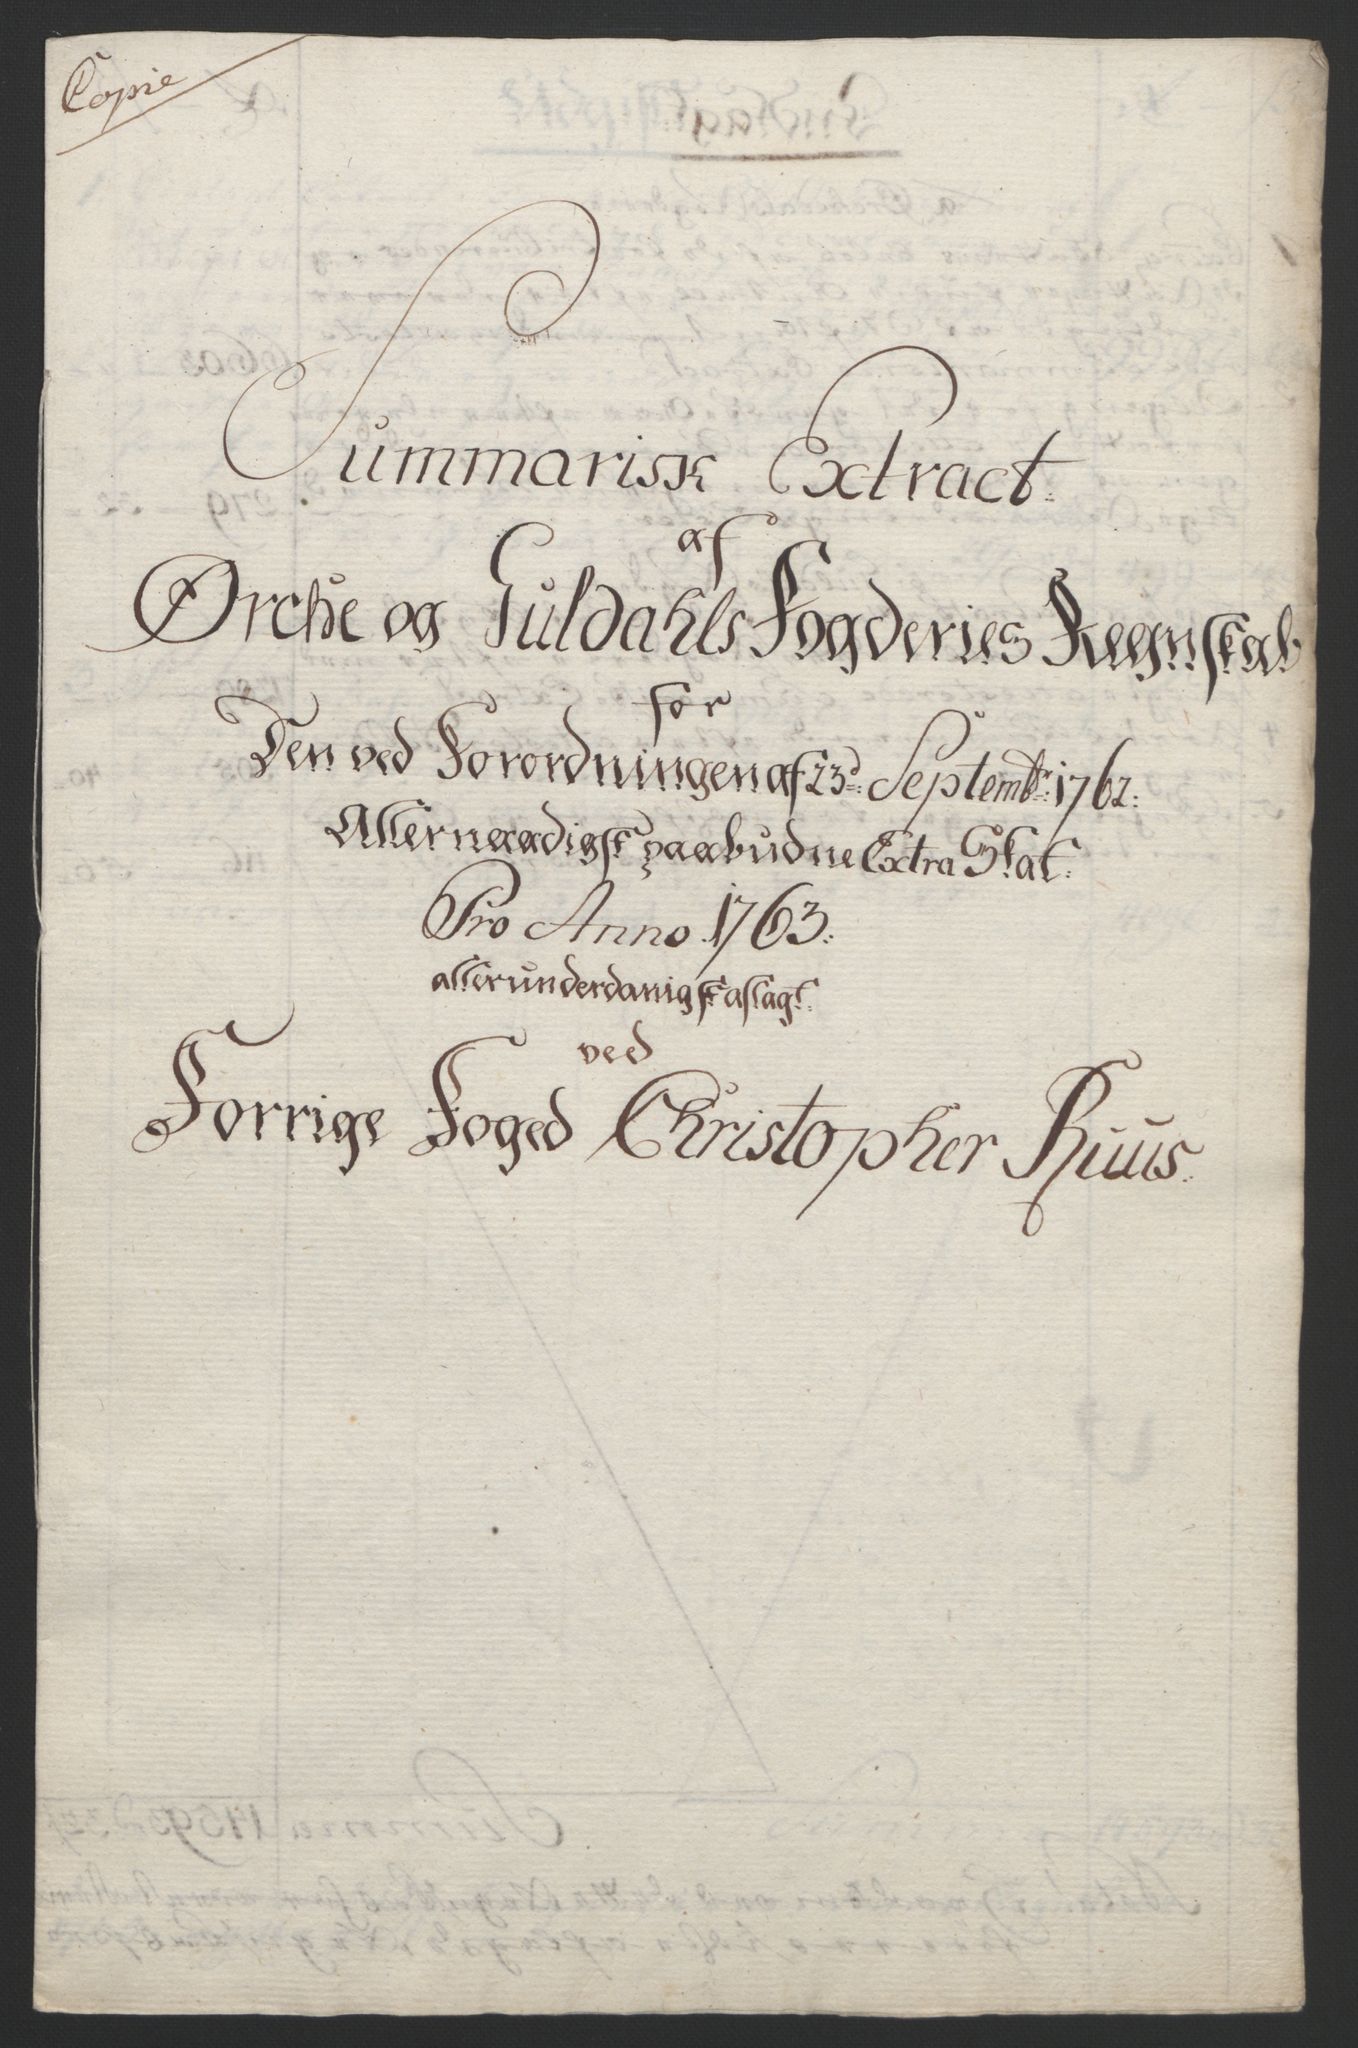 Copie
Summarisk Extract
af
Orche og Guldahls Fogderies Regnskab
for
Den ved Forordningen af 23d: Septembr: 1762:
Allernaadigst paabudne Extra Skat:
Pro Anno 1763:
allerunderdanigst aflagt:
ved
Forrige Foged Christopher Ruus: